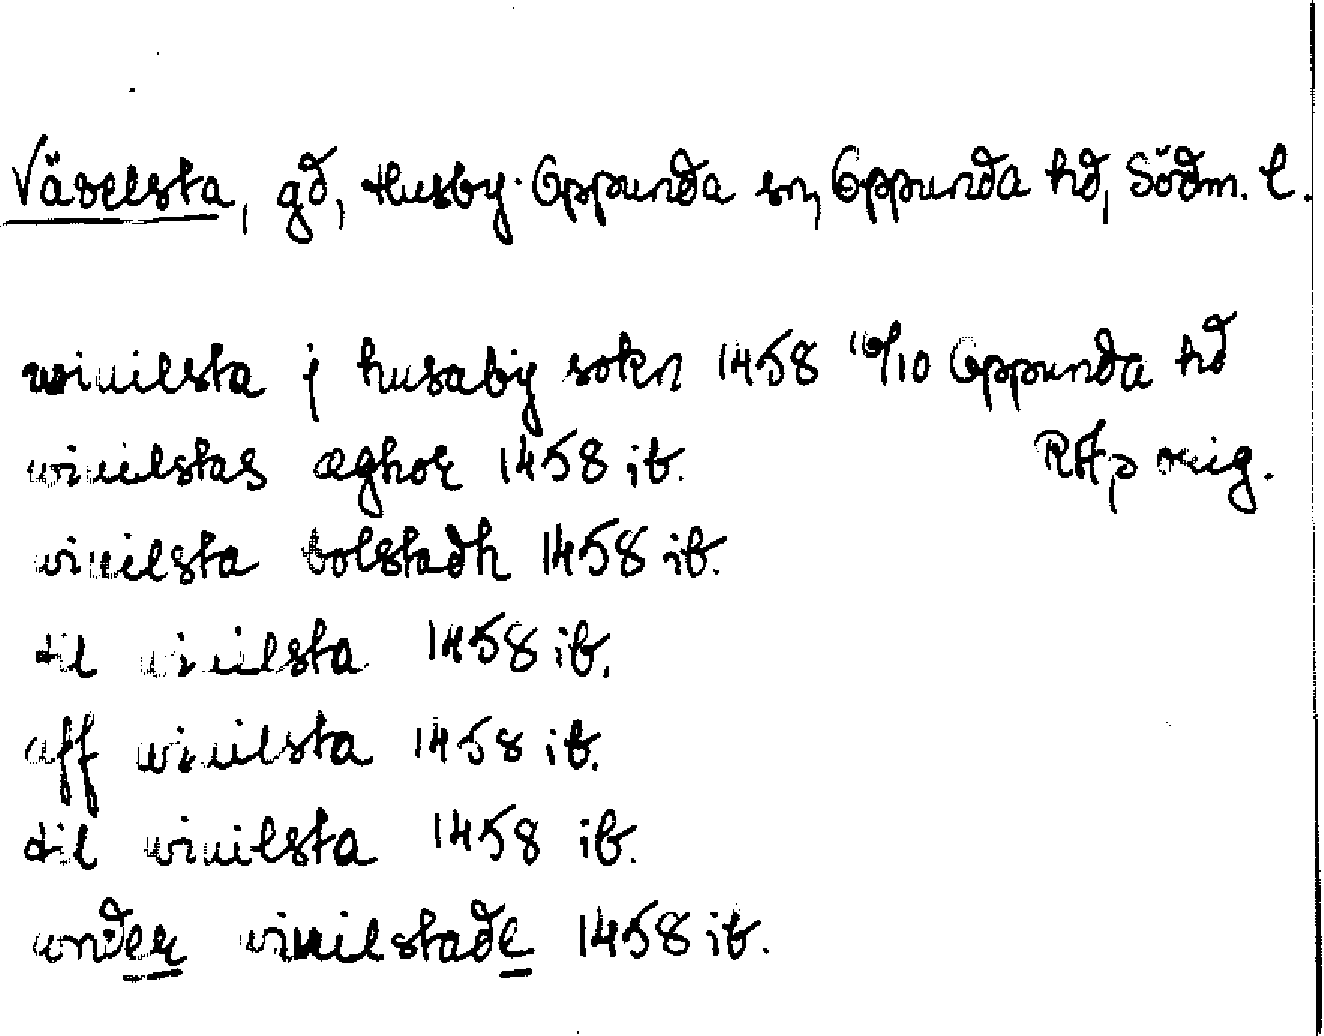 Väselsta, gd, Husby-Oppunda sn, Oppunda hd, Södm. l.
winilsta j husaby sokn 1458 16/10 Oppunda hd
winilstas æghor 1458 ib. RAp orig.
winilsta bolstadh 1458 ib.
til winilsta 1458 ib.
aff winilsta 1458 ib.
til winilsta 1458 ib.
wnder winilstade 1458 ib.